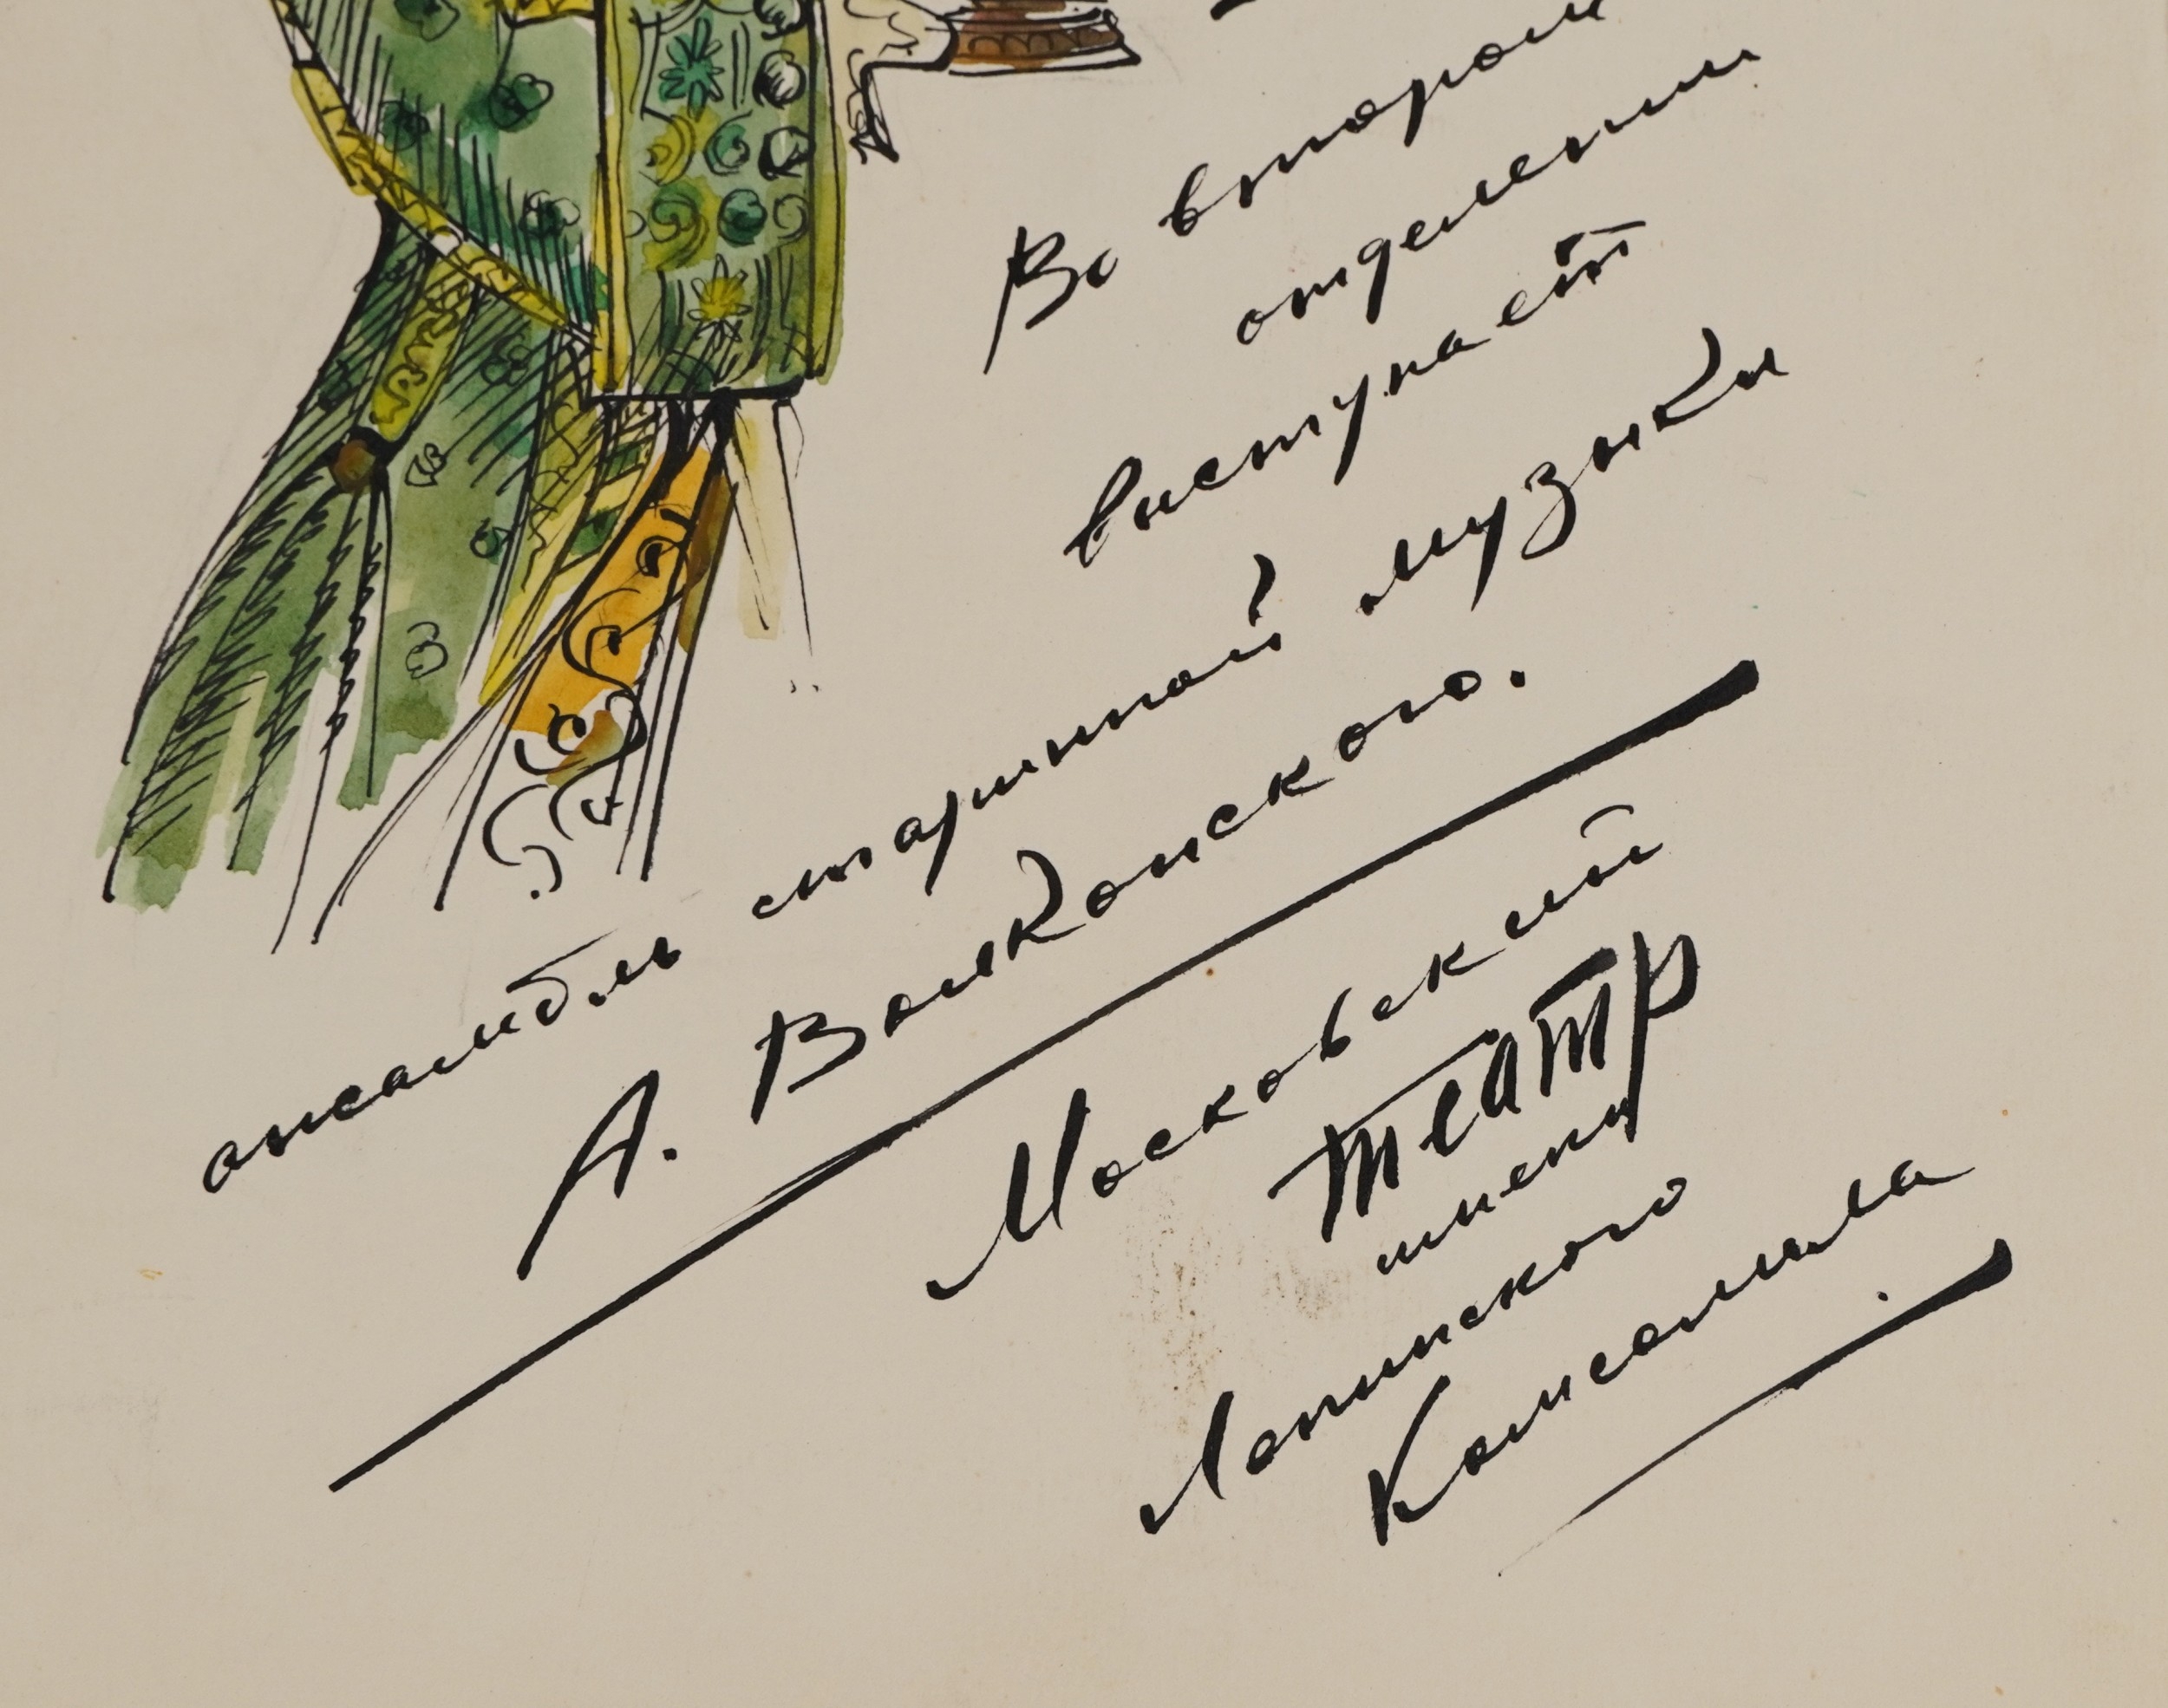 Во втором
отделении
выступает
ансамбль старинной музыки
А. Волконского.
Московский
театр
имени
Ленинского
Комсомола